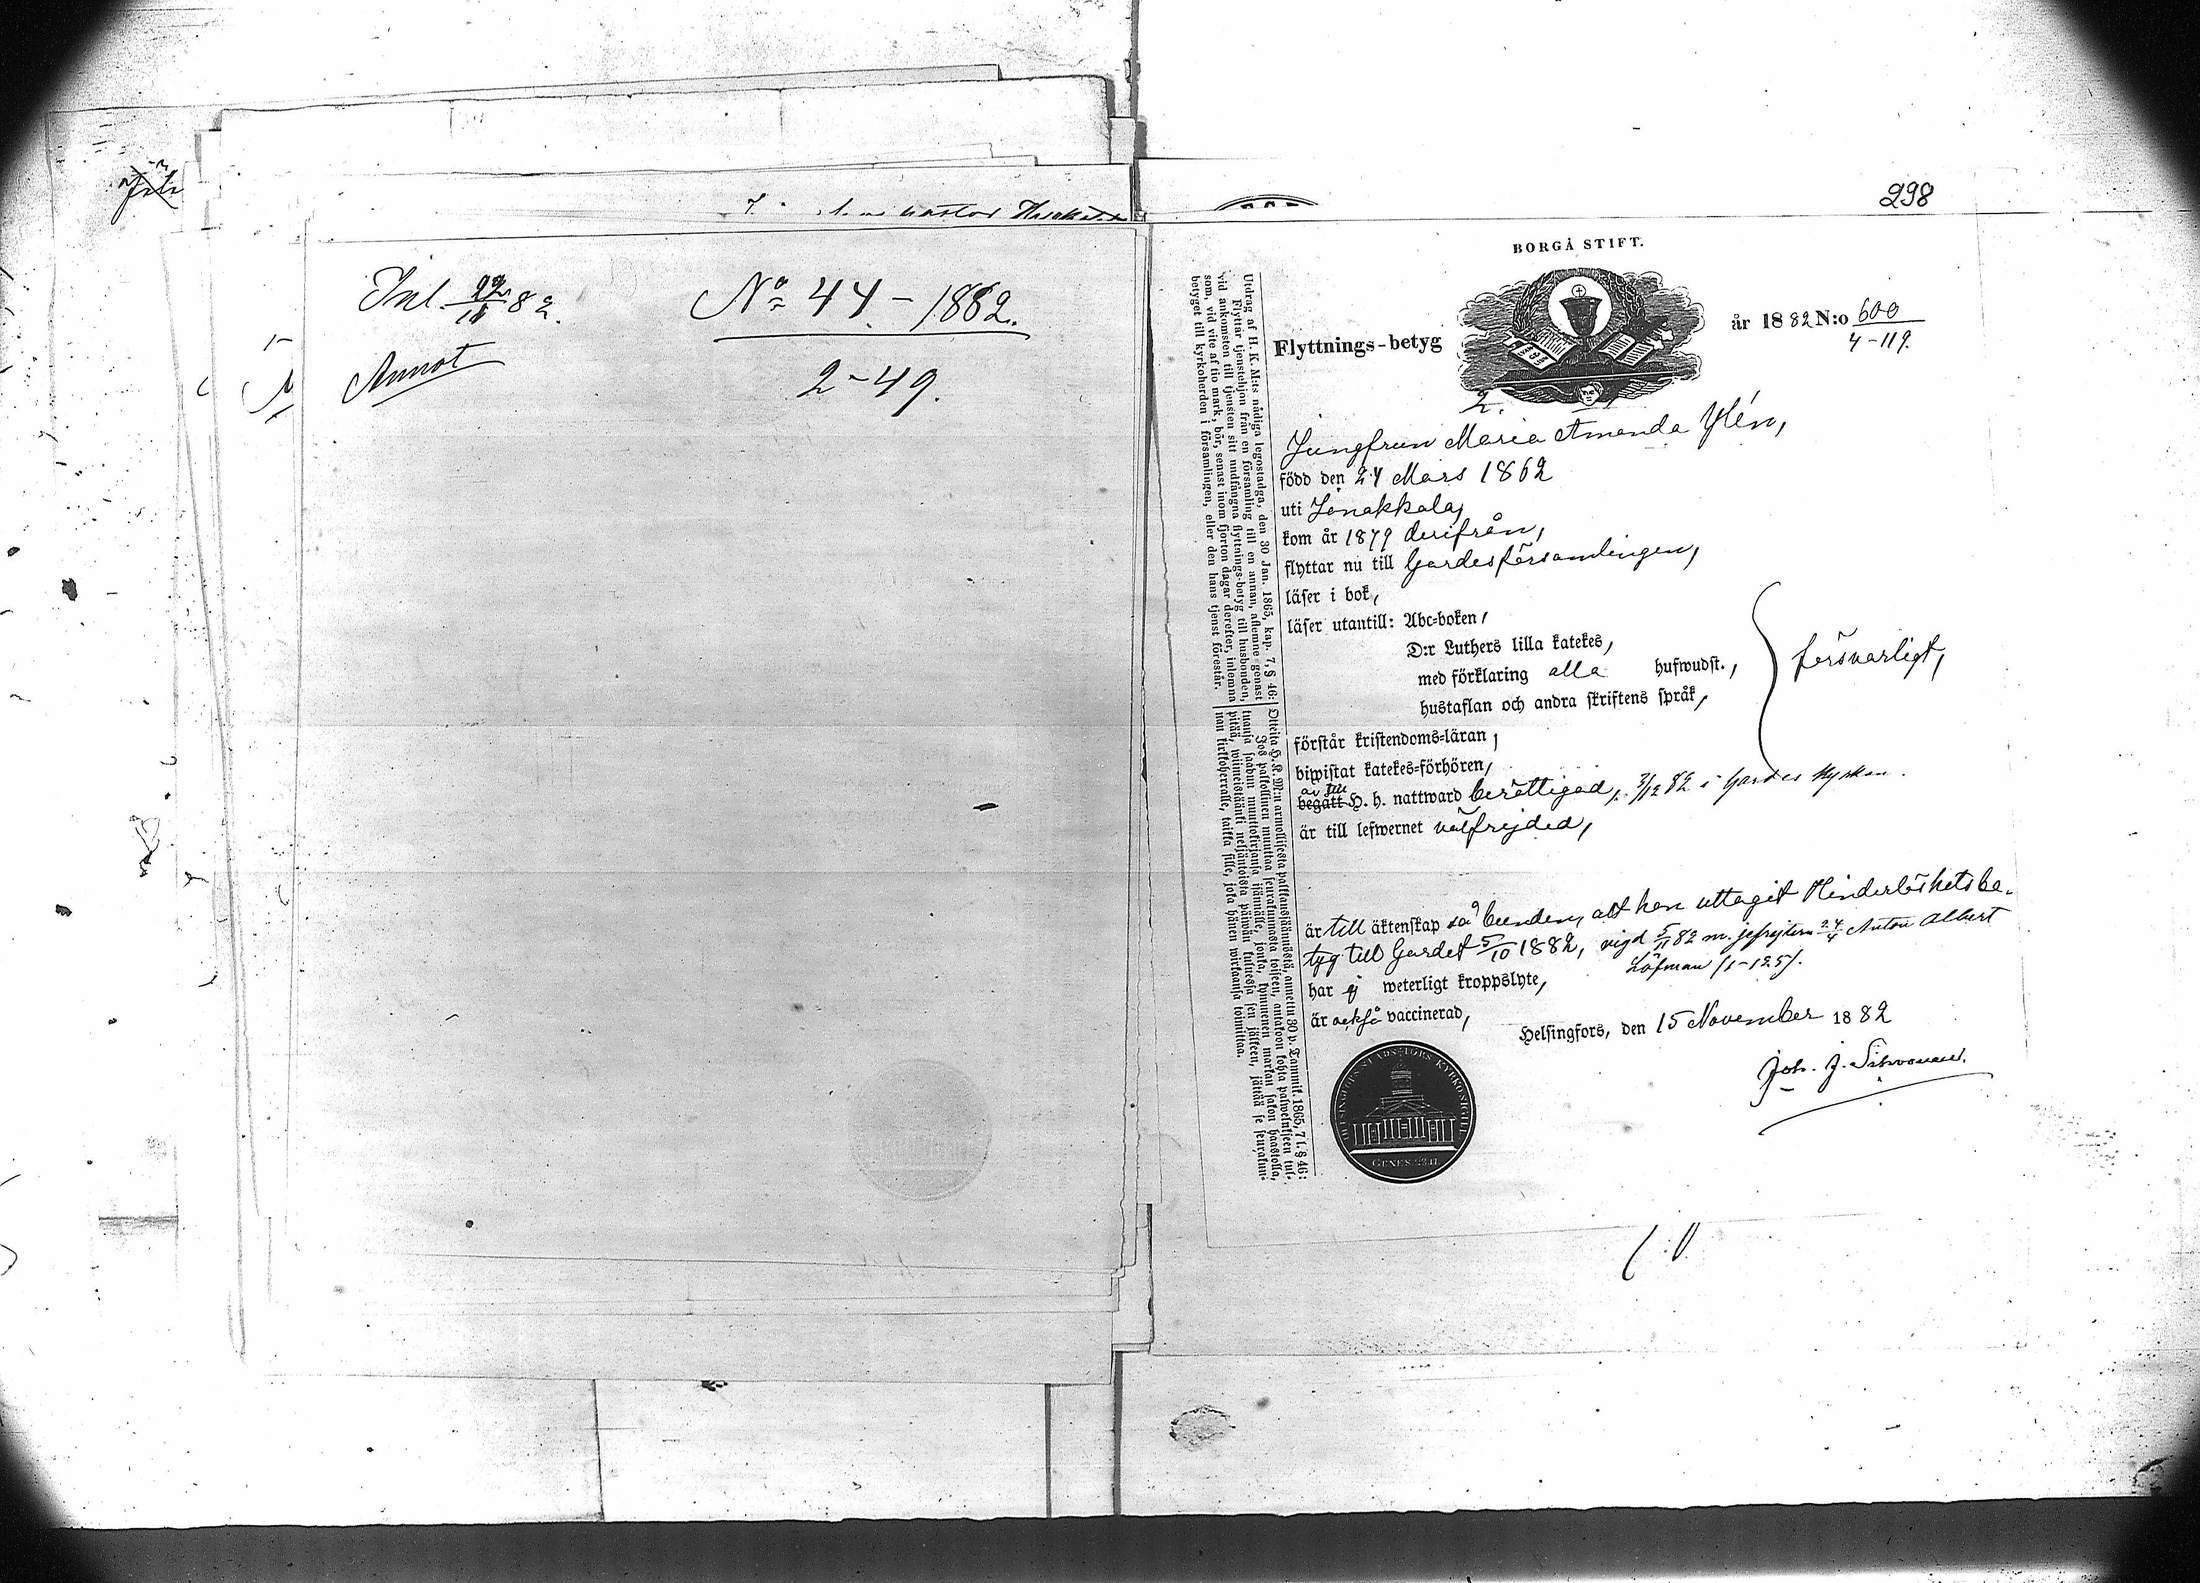 298
Inl. 22/11 82.
No 44 - 1882.
Annot
2-49.
BORGÅ STIFT.
Flyttnings-betyg
år 1882 N:o 600
4-119.
2.
Jungfrun Maria Amanda Ylén,
född den 24 Mars 1862
uti Janakkala,
kom år 1879 derifrån,
flyttar nu till Gardesförsamlingen,
läser i bok,
läser utantill: Abc-boken,
D:r Luthers lilla katekes,
med förklaring alla hufwudst.,
hustaflan och andra skriftens språk,
försvarligt,
förstår kristendoms-läran,
biwistat katekes-förhören,
är till
begått H. h. nattward berättigad, 3/12 82 i Gardes kyrkan.
är till lefwernet välfrejdad,
är till äktenskap så bunden, att hon uttagit Hinderlöshetsbe-
tyg till Gardet 5/10 1882, vigd 5/11 82 m. gefrejtern 24/4 Anton Albert
Löfman (1-125).
har ej weterligt kroppslyte,
är också vaccinerad,
Helsingfors, den 15 November 1882
Joh. J.
Utdrag af H. K. M:ts nådiga legostadga, den 30 Jan. 1865, kap. 7, § 46:
Flyttar tjenstehjon från en församling till en annan, aflemne genast
vid ankomsten till tjensten sitt undfångna flyttnings-betyg till husbonden,
som, vid vite af tio mark, bör, senast inom fjorton dagar derefter, inlemna
betyget till kyrkoherden i församlingen, eller den hans tjenst förestår.
Otteita H. K. M:n armollisesta palkkaussäännöstä, annettu 30 p. Tammik. 1865, 7 l. § 46:
Jos palkollinen muuttaa seurakunnasta toiseen, antakoon kohta palwelukseen tul-
tuansa saadun muuttokirjansa isännälle, jonka, kymmenen markan sakon haastolla,
pitää, wiimeistäänki neljäntoista päiwän kuluessa sen jälkeen, jättää se seurakun-
nan kirkkoherralle, taikka sille, joka hänen wirkaansa toimittaa.
HELSINGFORS STADSFÖRS KYRKOSIGILL
GENES. 28.17.